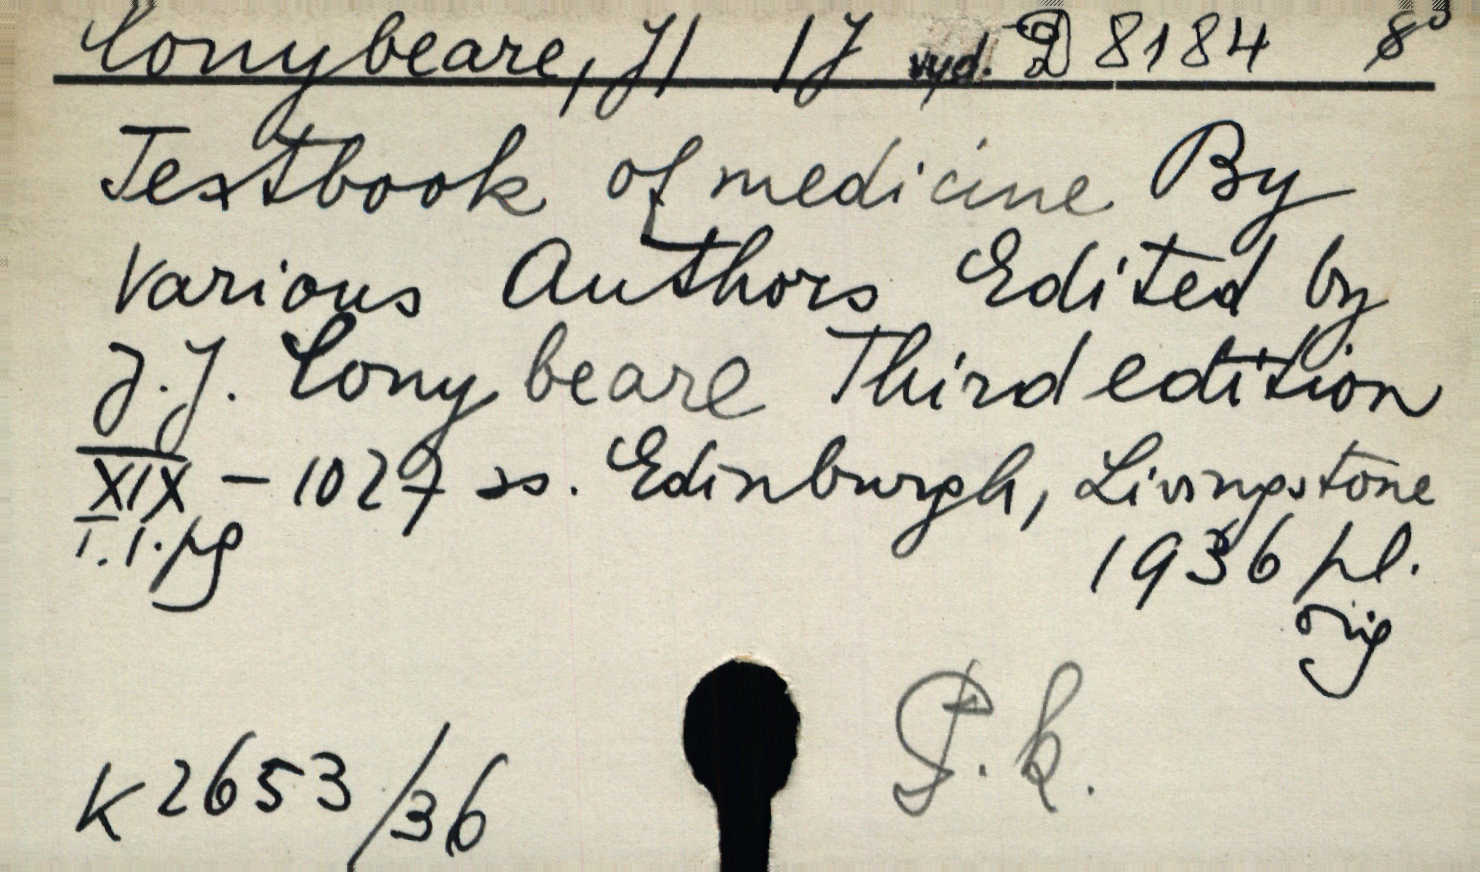 Conybeare, J| |J vyd. D 8184 8°
Textbook of medicine By
Various Authors Edited by
J.J. Conybeare Third edition
XIX – 1027 ss. Edinburgh, Livingstone
1.1.pg 1936 pl.
orig
P.k.
K 2653/36